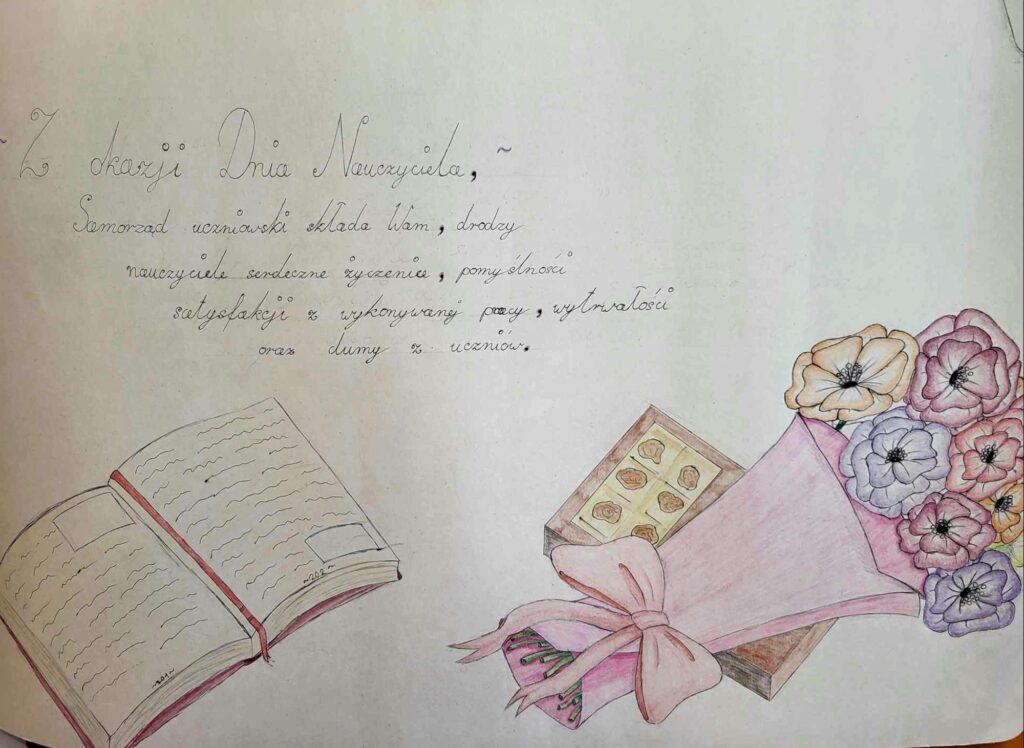 ~ Z okazji Dnia Nauczyciela, ~
Samorząd uczniowski składa Wam, drodzy
nauczyciele serdeczne życzenia, pomyślności
satysfakcji z wykonywanej pracy, wytrwałości
oraz dumy z uczniów.
~201~
~202~